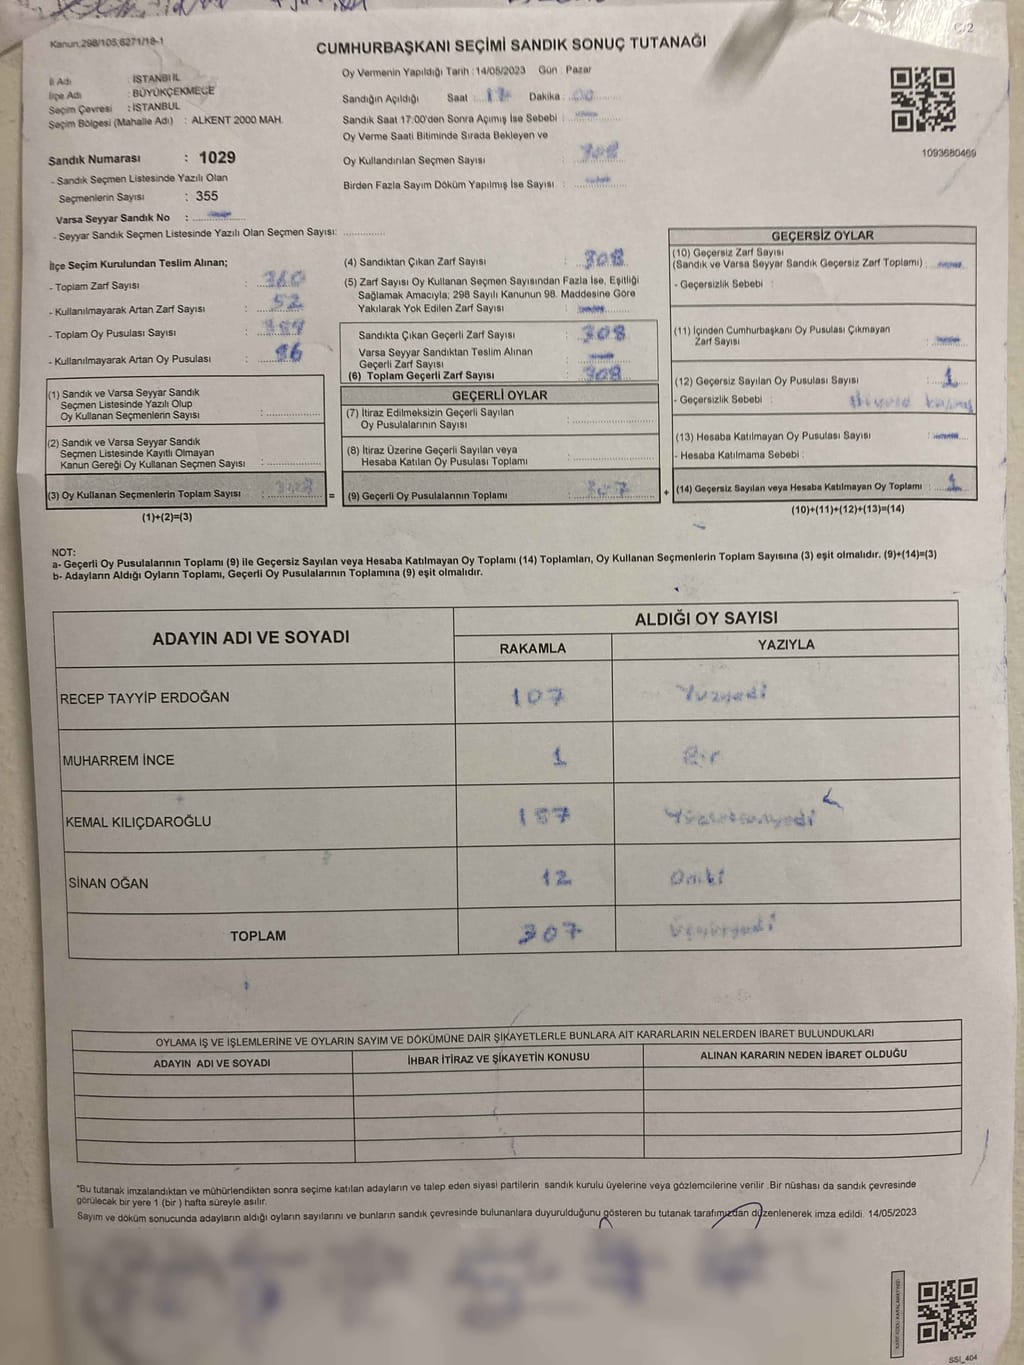 C/2
Kanun:298/105;6271/18-1
CUMHURBAŞKANI SEÇİMİ SANDIK SONUÇ TUTANAĞI
İl Adı : İSTANBUL
İlçe Adı : BÜYÜKÇEKMECE
Seçim Çevresi : İSTANBUL
Seçim Bölgesi (Mahalle Adı) : ALKENT 2000 MAH.
Oy Vermenin Yapıldığı Tarih :14/05/2023 Gün : Pazar
Sandığın Açıldığı Saat : 17 Dakika : 00
Sandık Saat 17:00'den Sonra Açımış İse Sebebi :
Oy Verme Saati Bitiminde Sırada Bekleyen ve
Oy Kullandırılan Seçmen Sayısı :
Birden Fazla Sayım Döküm Yapılmış İse Sayısı :
1093680469
Sandık Numarası : 1029
- Sandık Seçmen Listesinde Yazılı Olan
Seçmenlerin Sayısı : 355
Varsa Seyyar Sandık No :
- Seyyar Sandık Seçmen Listesinde Yazılı Olan Seçmen Sayısı:
İlçe Seçim Kurulundan Teslim Alınan;
- Toplam Zarf Sayısı : 360
- Kullanılmayarak Artan Zarf Sayısı : 52
- Toplam Oy Pusulası Sayısı :
- Kullanılmayarak Artan Oy Pusulası :
(1) Sandık ve Varsa Seyyar Sandık
Seçmen Listesinde Yazılı Olup
Oy Kullanan Seçmenlerin Sayısı :
(2) Sandık ve Varsa Seyyar Sandık
Seçmen Listesinde Kayıtlı Olmayan
Kanun Gereği Oy Kullanan Seçmen Sayısı :
(3) Oy Kullanan Seçmenlerin Toplam Sayısı : 308
=
(1)+(2)=(3)
(4) Sandıktan Çıkan Zarf Sayısı : 308
(5) Zarf Sayısı Oy Kullanan Seçmen Sayısından Fazla İse, Eşitliği
Sağlamak Amacıyla; 298 Sayılı Kanunun 98. Maddesine Göre
Yakılarak Yok Edilen Zarf Sayısı :
Sandıkta Çıkan Geçerli Zarf Sayısı : 308
Varsa Seyyar Sandıktan Teslim Alınan
Geçerli Zarf Sayısı :
(6) Toplam Geçerli Zarf Sayısı : 308
GEÇERLİ OYLAR
(7) İtiraz Edilmeksizin Geçerli Sayılan
Oy Pusulalarının Sayısı :
(8) İtiraz Üzerine Geçerli Sayılan veya
Hesaba Katılan Oy Pusulası Toplamı :
(9) Geçerli Oy Pusulalarının Toplamı : 307
+
GEÇERSİZ OYLAR
(10) Geçersiz Zarf Sayısı
(Sandık ve Varsa Seyyar Sandık Geçersiz Zarf Toplamı) :
- Geçersizlik Sebebi :
(11) İçinden Cumhurbaşkanı Oy Pusulası Çıkmayan
Zarf Sayısı :
(12) Geçersiz Sayılan Oy Pusulası Sayısı : 1
- Geçersizlik Sebebi :
(13) Hesaba Katılmayan Oy Pusulası Sayısı :
- Hesaba Katılmama Sebebi :
(14) Geçersiz Sayılan veya Hesaba Katılmayan Oy Toplamı : 1
(10)+(11)+(12)+(13)=(14)
NOT:
a- Geçerli Oy Pusulalarının Toplamı (9) ile Geçersiz Sayılan veya Hesaba Katılmayan Oy Toplamı (14) Toplamları, Oy Kullanan Seçmenlerin Toplam Sayısına (3) eşit olmalıdır. (9)+(14)=(3)
b- Adayların Aldığı Oyların Toplamı, Geçerli Oy Pusulalarının Toplamına (9) eşit olmalıdır.
ADAYIN ADI VE SOYADI
ALDIĞI OY SAYISI
RAKAMLA YAZIYLA
RECEP TAYYİP ERDOĞAN 107 Yüzyedi
MUHARREM İNCE 1 Bir
KEMAL KILIÇDAROĞLU 187 Yüzseksenyedi
SİNAN OĞAN 12 Oniki
TOPLAM 307 Üçyüzyedi
OYLAMA İŞ VE İŞLEMLERİNE VE OYLARIN SAYIM VE DÖKÜMÜNE DAİR ŞİKAYETLERLE BUNLARA AİT KARARLARIN NELERDEN İBARET BULUNDUKLARI
ADAYIN ADI VE SOYADI İHBAR İTİRAZ VE ŞİKAYETİN KONUSU ALINAN KARARIN NEDEN İBARET OLDUĞU
*Bu tutanak imzalandıktan ve mühürlendikten sonra seçime katılan adayların ve talep eden siyasi partilerin sandık kurulu üyelerine veya gözlemcilerine verilir .Bir nüshası da sandık çevresinde
görülecek bir yere 1 (bir ) hafta süreyle asılır.
Sayım ve döküm sonucunda adayların aldığı oyların sayılarını ve bunların sandık çevresinde bulunanlara duyurulduğunu gösteren bu tutanak tarafımızdan düzenlenerek imza edildi. 14/05/2023
SSI_404